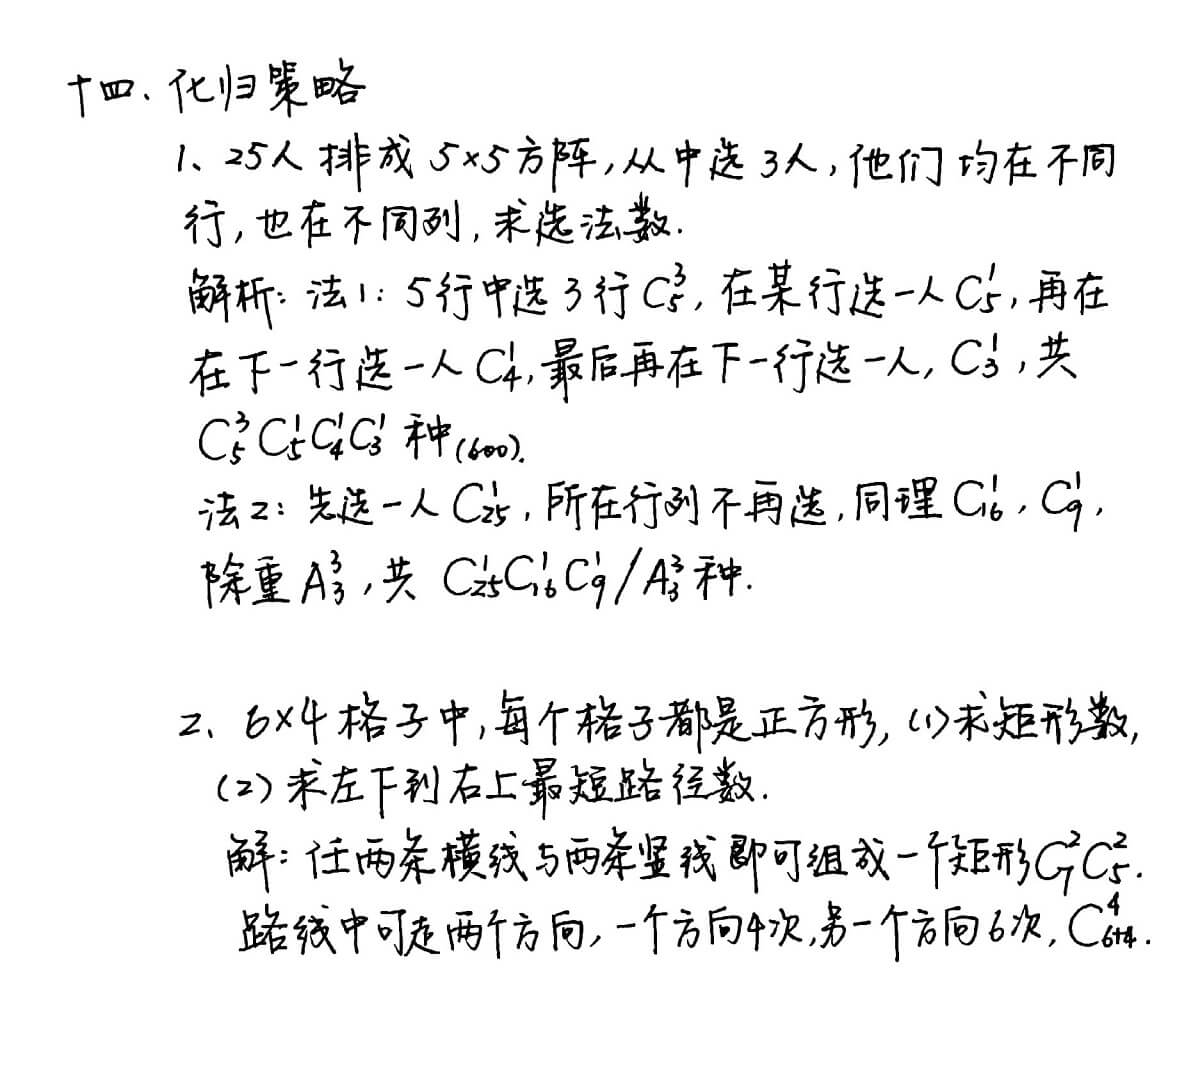 十四、化归策略
1、25人排成5×5方阵,从中选3人,他们均在不同
行,也在不同列,求选法数.
解析:法1:5行中选3行C₅³,在某行选一人C₅¹,再在
在下一行选一人C₄¹,最后再在下一行选一人,C₃¹,共
C₅³C₅¹C₄¹C₃¹种(600).
法2:先选一人C₂₅¹,所在行列不再选,同理C₁₆¹,C₉¹,
除重A₃³,共 C₂₅¹C₁₆¹C₉¹/A₃³种.
2、6×4格子中,每个格子都是正方形,(1)求矩形数,
(2)求左下到右上最短路径数.
解:任两条横线与两条竖线即可组成一个矩形C₇²C₅².
路线中可走两个方向,一个方向4次,另一个方向6次,C₆₊₄⁴.